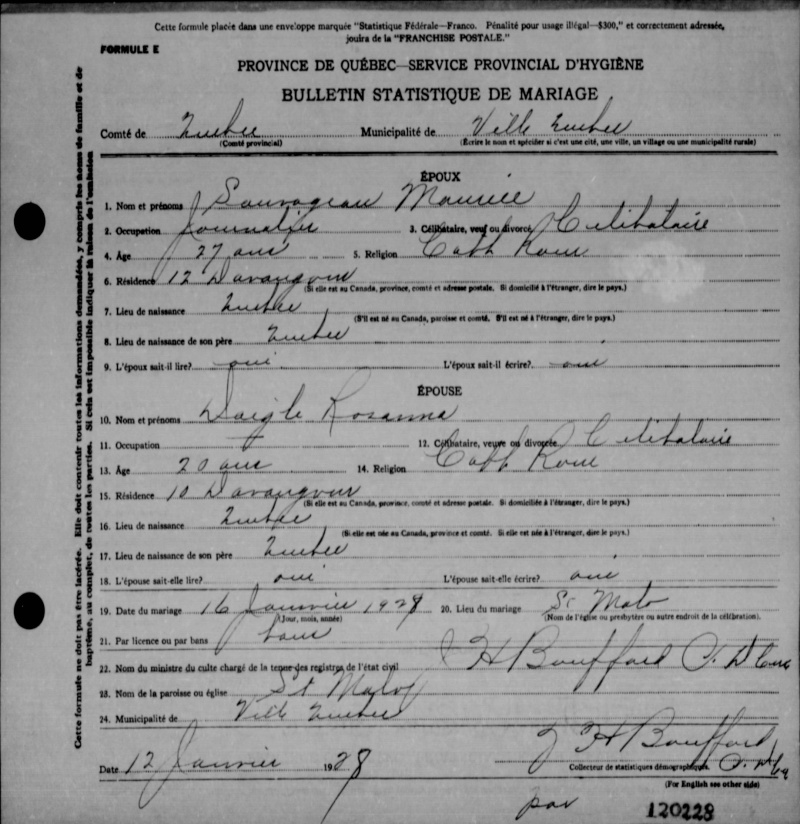 Cette formule placée dans une enveloppe marquée "Statistique Fédérale—Franco. Pénalité pour usage illégal—$300," et correctement adressée,
jouira de la "FRANCHISE POSTALE."
FORMULE E
PROVINCE DE QUÉBEC—SERVICE PROVINCIAL D'HYGIÈNE
BULLETIN STATISTIQUE DE MARIAGE
Comté de Quebec Municipalité de Ville Quebec
(Comté provincial) (Écrire le nom et spécifier si c'est une cité, une ville, un village ou une municipalité rurale)
ÉPOUX
1. Nom et prénoms Sauvageau Maurice
2. Occupation Journalier 3. Célibataire, veuf ou divorcé Celibataire
4. Âge 27 ans 5. Religion Cath Rom
6. Résidence 12 Davaugour
(Si elle est au Canada, province, comté et adresse postale. Si domicilié à l'étranger, dire le pays.)
7. Lieu de naissance Quebec
(S'il est né au Canada, paroisse et comté. S'il est né à l'étranger, dire le pays.)
8. Lieu de naissance de son père Quebec
9. L'époux sait-il lire? oui L'époux sait-il écrire? oui
ÉPOUSE
10. Nom et prénoms Daigle Rosanna
11. Occupation 12. Célibataire, veuve ou divorcée Celibataire
13. Âge 20 ans 14. Religion Cath Rom
15. Résidence 10 Davaugour
(Si elle est au Canada, province, comté et adresse postale. Si domiciliée à l'étranger, dire le pays.)
16. Lieu de naissance Quebec
(Si elle est née au Canada, province et comté. Si elle est née à l'étranger, dire le pays.)
17. Lieu de naissance de son père Quebec
18. L'épouse sait-elle lire? oui L'épouse sait-elle écrire? oui
19. Date du mariage 16 Janvier 1928 20. Lieu du mariage St Malo
(Jour, mois, année) (Nom de l'église ou presbytère ou autre endroit de la célébration).
21. Par licence ou par bans bans
22. Nom du ministre du culte chargé de la tenue des registres de l'état civil H Bouffard
23. Nom de la paroisse ou église St Malo
24. Municipalité de Ville Quebec
H Bouffard
Date 12 Janvier 1928 Collecteur de statistiques démographiques.
(For English see other side)
par 120228
Cette formule ne doit pas être lacérée. Elle doit contenir toutes les informations demandées, y compris les noms de famille et de
baptême, au complet, de toutes les parties. Si cela est impossible indiquer la raison de l'omission